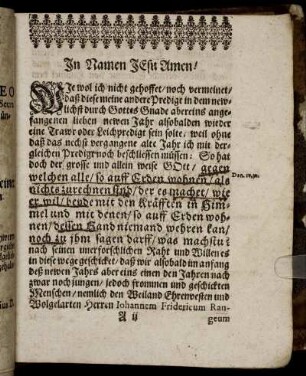 In Namen JEsu Amen/
WIe wol ich nicht gehoffet/ noch vermeinet/
daß diese meine andere Predigt in dem new-
lichst durch Gottes Gnade abereins ange-
fangenen lieben newen Jahr alsobalden wieder
eine Trawr oder Leichpredigt sein solte/ weil ohne
daß das nechst vergangene alte Jahr ich mit der-
gleichen Predigt noch beschliessen müssen: So hat
doch der grosse und allein weise GOtt/ gegen
welchen alle/ so auff Erden wohnen/ als
nichts zurechnen sind/ der es machet/ wie
er wil/ beyde mit den Kräfften im Him-
mel und mit denen/ so auff Erden woh-
nen/ dessen Hand niemand wehren kan/
noch zu ihm sagen darff/ was machstu:
nach seinen unerforschlichen Raht und Willen es
in diese wege geschicket/ daß wir alsobald im anfang
deß newen Jahrs aber eins einen den Jahren nach
zwar noch jungen/ jedoch frommen und geschickten
Menschen/ nemlich den Weiland Ehrenvesten und
Wolgelarten Herren Iohannem Fridericum Ran-
A ij
geum
Dan.